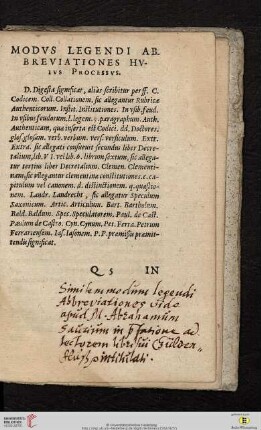 MODVS LEGENDI AB.
BREVIATIONES HV.
IVS PROCESSVS.
D. Digesta significat, aliàs scribitur per ff. C.
Codicem. Coll. Collationem, sic allegantur Rubricæ
Authenticarum. Insti. Institutiones. In vsib. feud.
In vsibus feudorum. l. legem. §. paragraphum. Auth.
Authenticam, quæ inserta est Codici. dd. Doctores.
glos. glosam. verb. verbum. vers. versiculum. Extr.
Extra. sic allegari consueuit secundus liber Decre-
talium, lib. VI. vel lib. 6. librum sextum, sic allega-
tur tertius liber Decretalium. Clemen. Clementi-
nam, sic allegantur clementinæ constitutiones. c. ca-
pitulum vel canonem. d. distinctionem. q. quæstio-
nem. Landr. Landrecht, sic allegatur Speculum
Saxonicum. Artic. Articulum. Bart. Bartholum.
Bald. Baldum. Spec. Speculatorem. Paul. de Cast.
Paulum de Castro. Cyn. Cynum. Pet. Ferra. Petrum
Ferrariensem. Ias. Iasonem. P. P. præmissis præmit-
tendis significat.
Q S IN
Similem modum legendi
Abbreviationes vide
apud M. Abrahamum
Saurium in præfatione ad
lectorem libri sui Gülden
fluß intitulati.